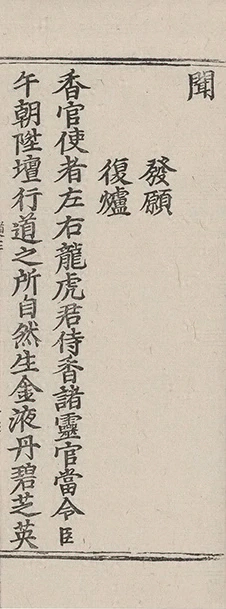 聞
發願
復爐
香官使者左右龍虎君侍香諸靈官當令臣
午朝陞壇行道之所自然生金液丹碧芝英